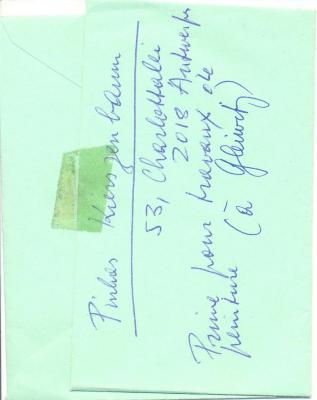 Pinhas Kierszenbaum
53, Charlottalei
2018 Antwerpen
Prime pour travaux de
peinture (à Gleiwitz)